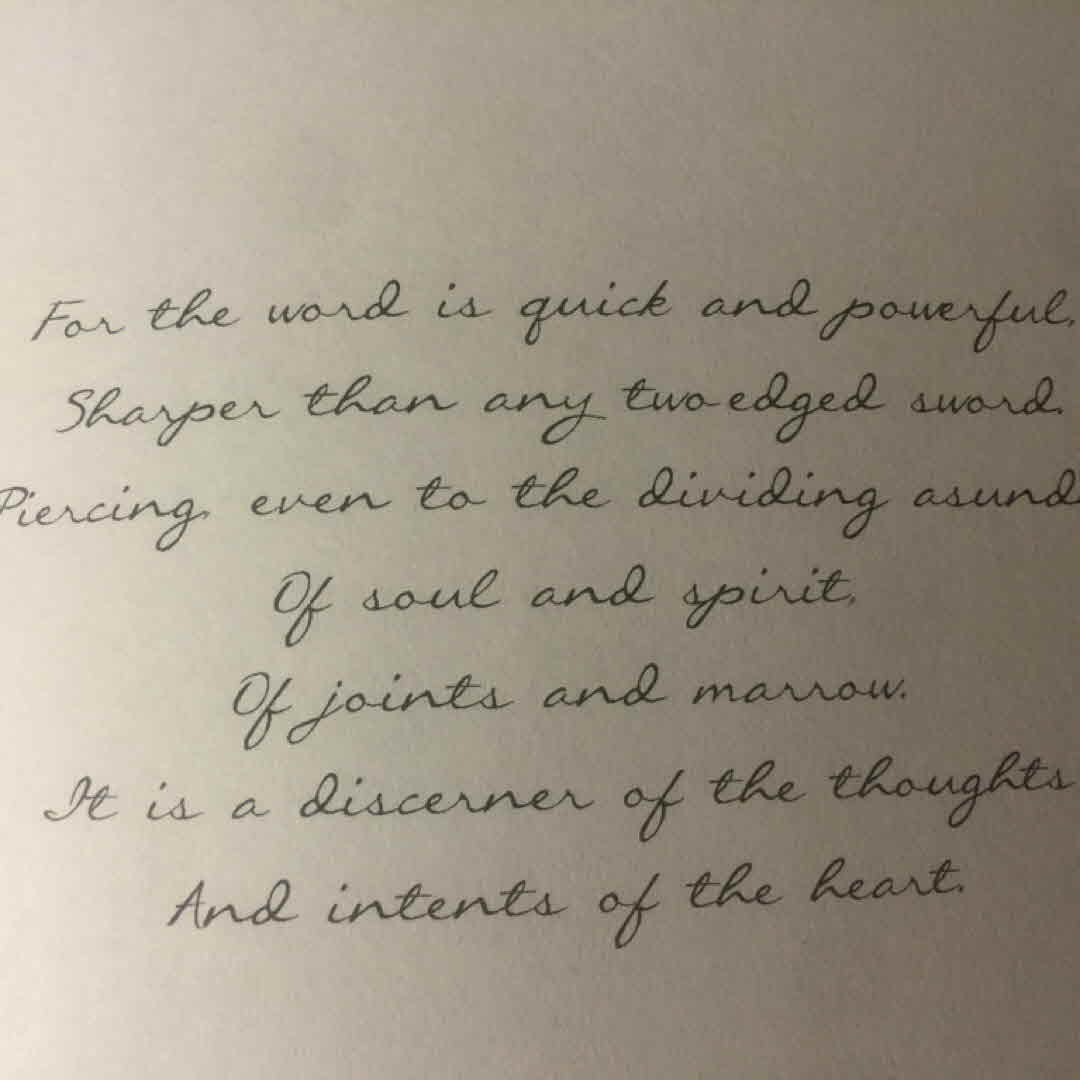 For the word is quick and powerful,
Sharper than any two-edged sword.
Piercing, even to the dividing asund
Of soul and spirit,
Of joints and marrow.
It is a discerner of the thoughts
And intents of the heart.